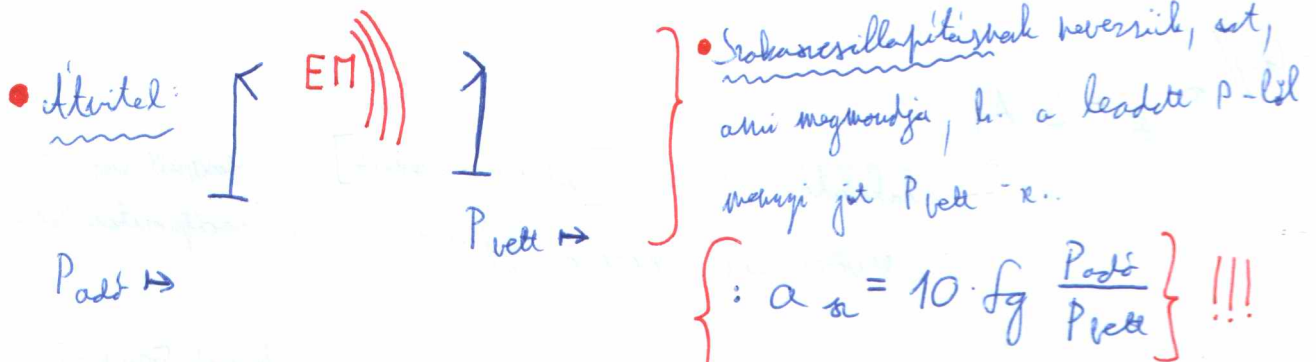 • Átvitel:
EM
P adó ↦
P vett ↦
• Szakaszcsillapításnak nevezzük, azt,
ami megmondja, h. a leadott P-ből
mennyi jut P vett -re.
: a sz = 10 · lg P adó / P vett !!!